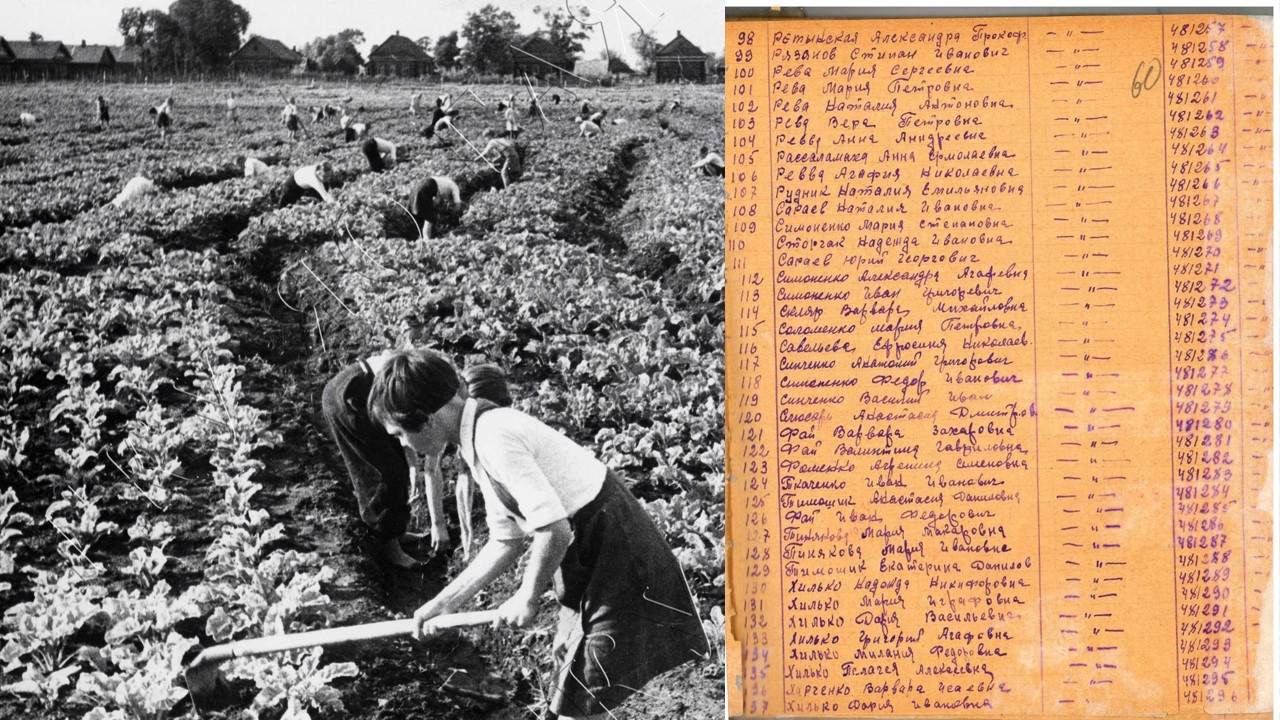 98 Рстынская Александра Прокоф. — " — 481257
99 Рязанов Стипан Иванович — " — 481258 — " —
100 Рева Мария Сергеевна — " — 481259
60
101 Рева Мария Петровна — " — 481260
102 Рева Наталия Антоновна — " — 481261
103 Рева Вера Петровна — " — 481262
104 Ревву Анна Анндреевна — " — 481263
105 Рассаламаха Анна Ермолаевна — " — 481264
106 Ревва Агафия Николаевна — " — 481265
107 Рудник Наталия Емильяновна — " — 481266
108 Сараев Наталия Ивановна — " — 481267
109 Симоненко Мария Степановна — " — 481268
110 Сторчак Надежда Ивановна — " — 481269
111 Сараев Юрий Георгович — " — 481270
112 Симоненко Александра Агафевна — " — 481271
113 Симоненко Иван Григоревич — " — 481272
114 Скляр Варвара Михайловна — " — 481273
115 Соломенко Мария Петровна — " — 481274
116 Савельева Ефросиния Николаев. — " — 481275
117 Синченко Анатолий Григорович — " — 481276
118 Симоненко Федор Иванович — " — 481277
119 Синченко Василий Иван — " — 481278
120 Слюсарь Анастасия Дмитров. — " — 481279
121 Фай Варвара Захаровна — " — 481280
122 Фай Валинтина Гавриловна — " — 481281
123 Фоменко Агрепина Семеновна — " — 481282
124 Ткаченко Иван Иванович — " — 481283
125 Тимошик Анастасия Даниловна — " — 481284
126 Фай Иван Федорович — " — 481285
127 Тинякова Мария Макаровна — " — 481286
128 Тинякова Мария Ивановна — " — 481287
129 Тимошик Екатерина Данилов — " — 481288
130 Хилько Надежда Никифоровна — " — 481289
131 Хилько Мария Играфовна — " — 481290
132 Хилько Дария Васильевна — " — 481291
133 Хилько Григорий Агафовна — " — 481292
134 Хилько Милания Федоровна — " — 481293
135 Хилько Пелагея Алексевна — " — 481294
136 Харченко Варвара Исаевна — " — 481295
137 Хилько Дария Ивановна — " — 481296